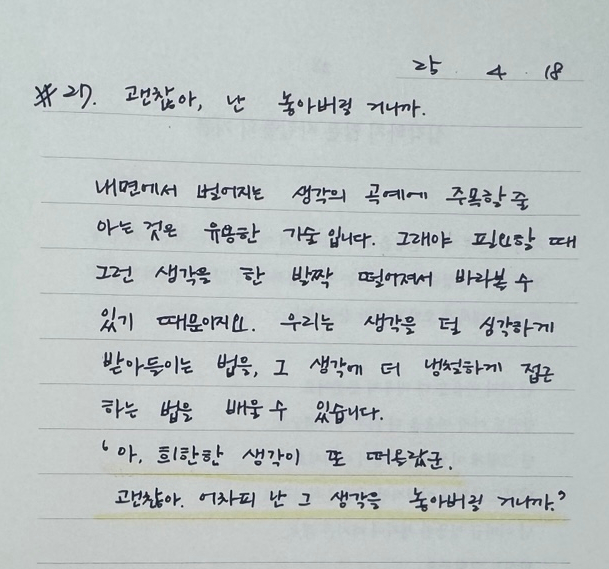 25. 4. 18
#27. 괜찮아, 난 놓아버릴 거니까.
내면에서 벌어지는 생각의 곡예에 주목할 줄
아는 것은 유용한 기술입니다. 그래야 필요할 때
그런 생각을 한 발짝 떨어져서 바라볼 수
있기 때문이지요. 우리는 생각을 덜 심각하게
받아들이는 법을, 그 생각에 더 냉철하게 접근
하는 법을 배울 수 있습니다.
'아, 희한한 생각이 또 떠올랐군.
괜찮아. 어차피 난 그 생각을 놓아버릴 거니까.'